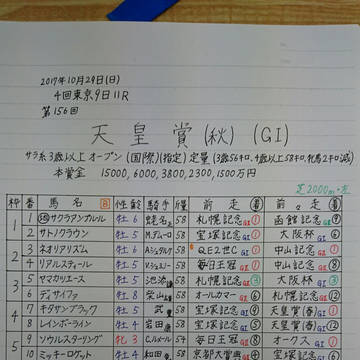 2017年10月29日(日)
4回東京9日11R
第156回
天皇賞(秋)(GI)
サラ系3歳以上オープン(国際)(指定)定量(3歳56キロ、4歳以上58キロ、牝馬2キロ減)
本賞金 15000, 6000, 3800, 2300, 1500万円
芝2000m・左
枠 番 馬名 B 性齢 騎手 斤量 前走 着 前々走 着
1 1 サクラアンプルール 牡6 蛯名 58 札幌記念GII ① 函館記念GIII
2 サトノクラウン 牡5 M.デムーロ 58 宝塚記念GI ① 大阪杯GI
2 3 ネオリアリズム 牡6 58 QE2世C GI ① 中山記念GII ①
4 リアルスティール 牡5 58 毎日王冠GII ① 中山記念GII
3 5 ヤマカツエース 牡5 池添 58 札幌記念GII 大阪杯GI ③
6 ディサイファ 牡8 柴山 58 オールカマーGII 札幌記念GII
4 7 キタサンブラック 牡5 武豊 58 宝塚記念GI 天皇賞(春)GI ①
8 レインボーライン 牡4 岩田 58 宝塚記念GI 天皇賞(春)GI
5 9 ソウルスターリング 牝3 C.ルメール 54 毎日王冠GII オークスGI ①
10 ミッキーロケット 牡4 和田 58 京都大賞典GII 宝塚記念GI